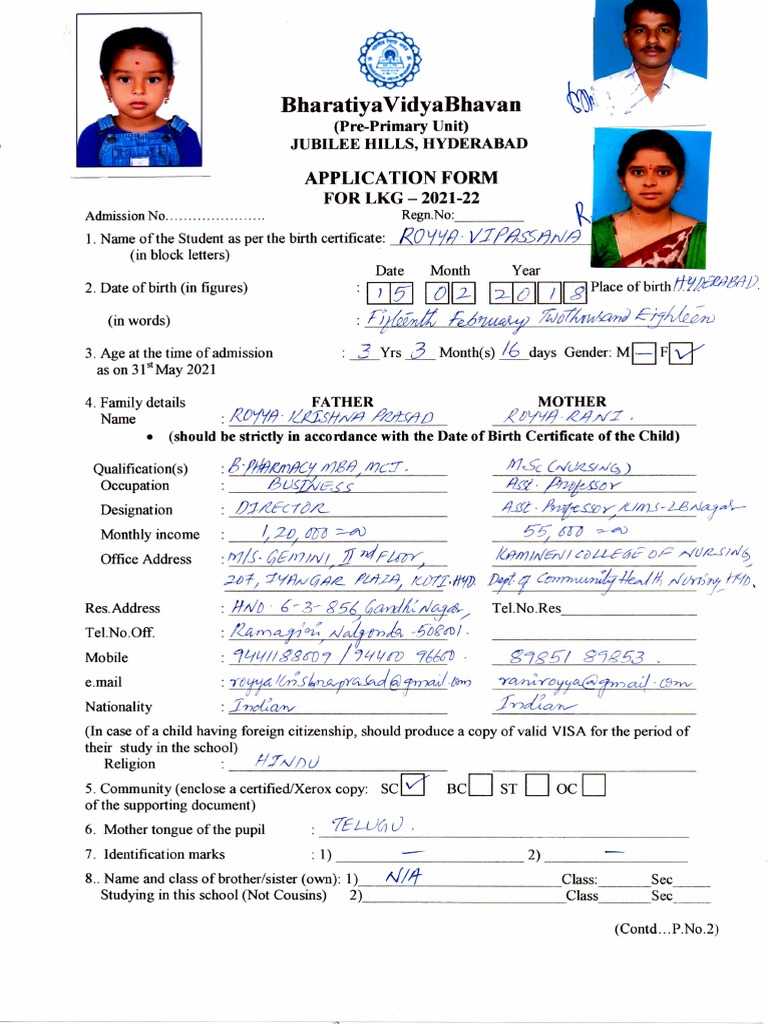 BharatiyaVidyaBhavan
(Pre-Primary Unit)
JUBILEE HILLS, HYDERABAD
APPLICATION FORM
FOR LKG – 2021-22
Admission No.................... Regn.No:__________
1. Name of the Student as per the birth certificate: ROYYA. VIPASSANA
(in block letters)
Date Month Year
2. Date of birth (in figures) : 15 02 2018 Place of birth HYDERABAD.
(in words) : Fifteenth February Twothousand Eighteen
3. Age at the time of admission : 3 Yrs 3 Month(s) 16 days Gender: M — F ✓
as on 31st May 2021
4. Family details FATHER MOTHER
Name : ROYYA. KRISHNA PRASAD ROYYA. RANI.
• (should be strictly in accordance with the Date of Birth Certificate of the Child)
Qualification(s) : B.PHARMACY MBA, MCJ. M.Sc (NURSING)
Occupation : BUSINESS Asst. Professor
Designation : DIRECTOR Asst. Professor, KIMS-LBNagar
Monthly income : 1,20,000=00 55,000=00
Office Address : M/S. GEMINI, IInd FLOOR, KAMINENI COLLEGE OF NURSING,
207, IYANGAR PLAZA, KOTI.HYD. Dept. of Community Health Nursing, HYD.
Res.Address : HNO. 6-3-856, Gandhi Nagar, Tel.No.Res__________
Tel.No.Off. : Ramagiri, Nalgonda-508001.
Mobile : 9441188009 / 94400 96600. 89851 89853.
e.mail : royyakrishnaprasad@gmail.com raniroyya@gmail.com
Nationality : Indian Indian
(In case of a child having foreign citizenship, should produce a copy of valid VISA for the period of
their study in the school)
Religion : HINDU
5. Community (enclose a certified/Xerox copy: SC ✓ BC ST OC
of the supporting document)
6. Mother tongue of the pupil : TELUGU.
7. Identification marks : 1) — 2) —
8.. Name and class of brother/sister (own): 1) N/A Class:______ Sec_____
Studying in this school (Not Cousins) 2)__________ Class______ Sec_____
(Contd...P.No.2)